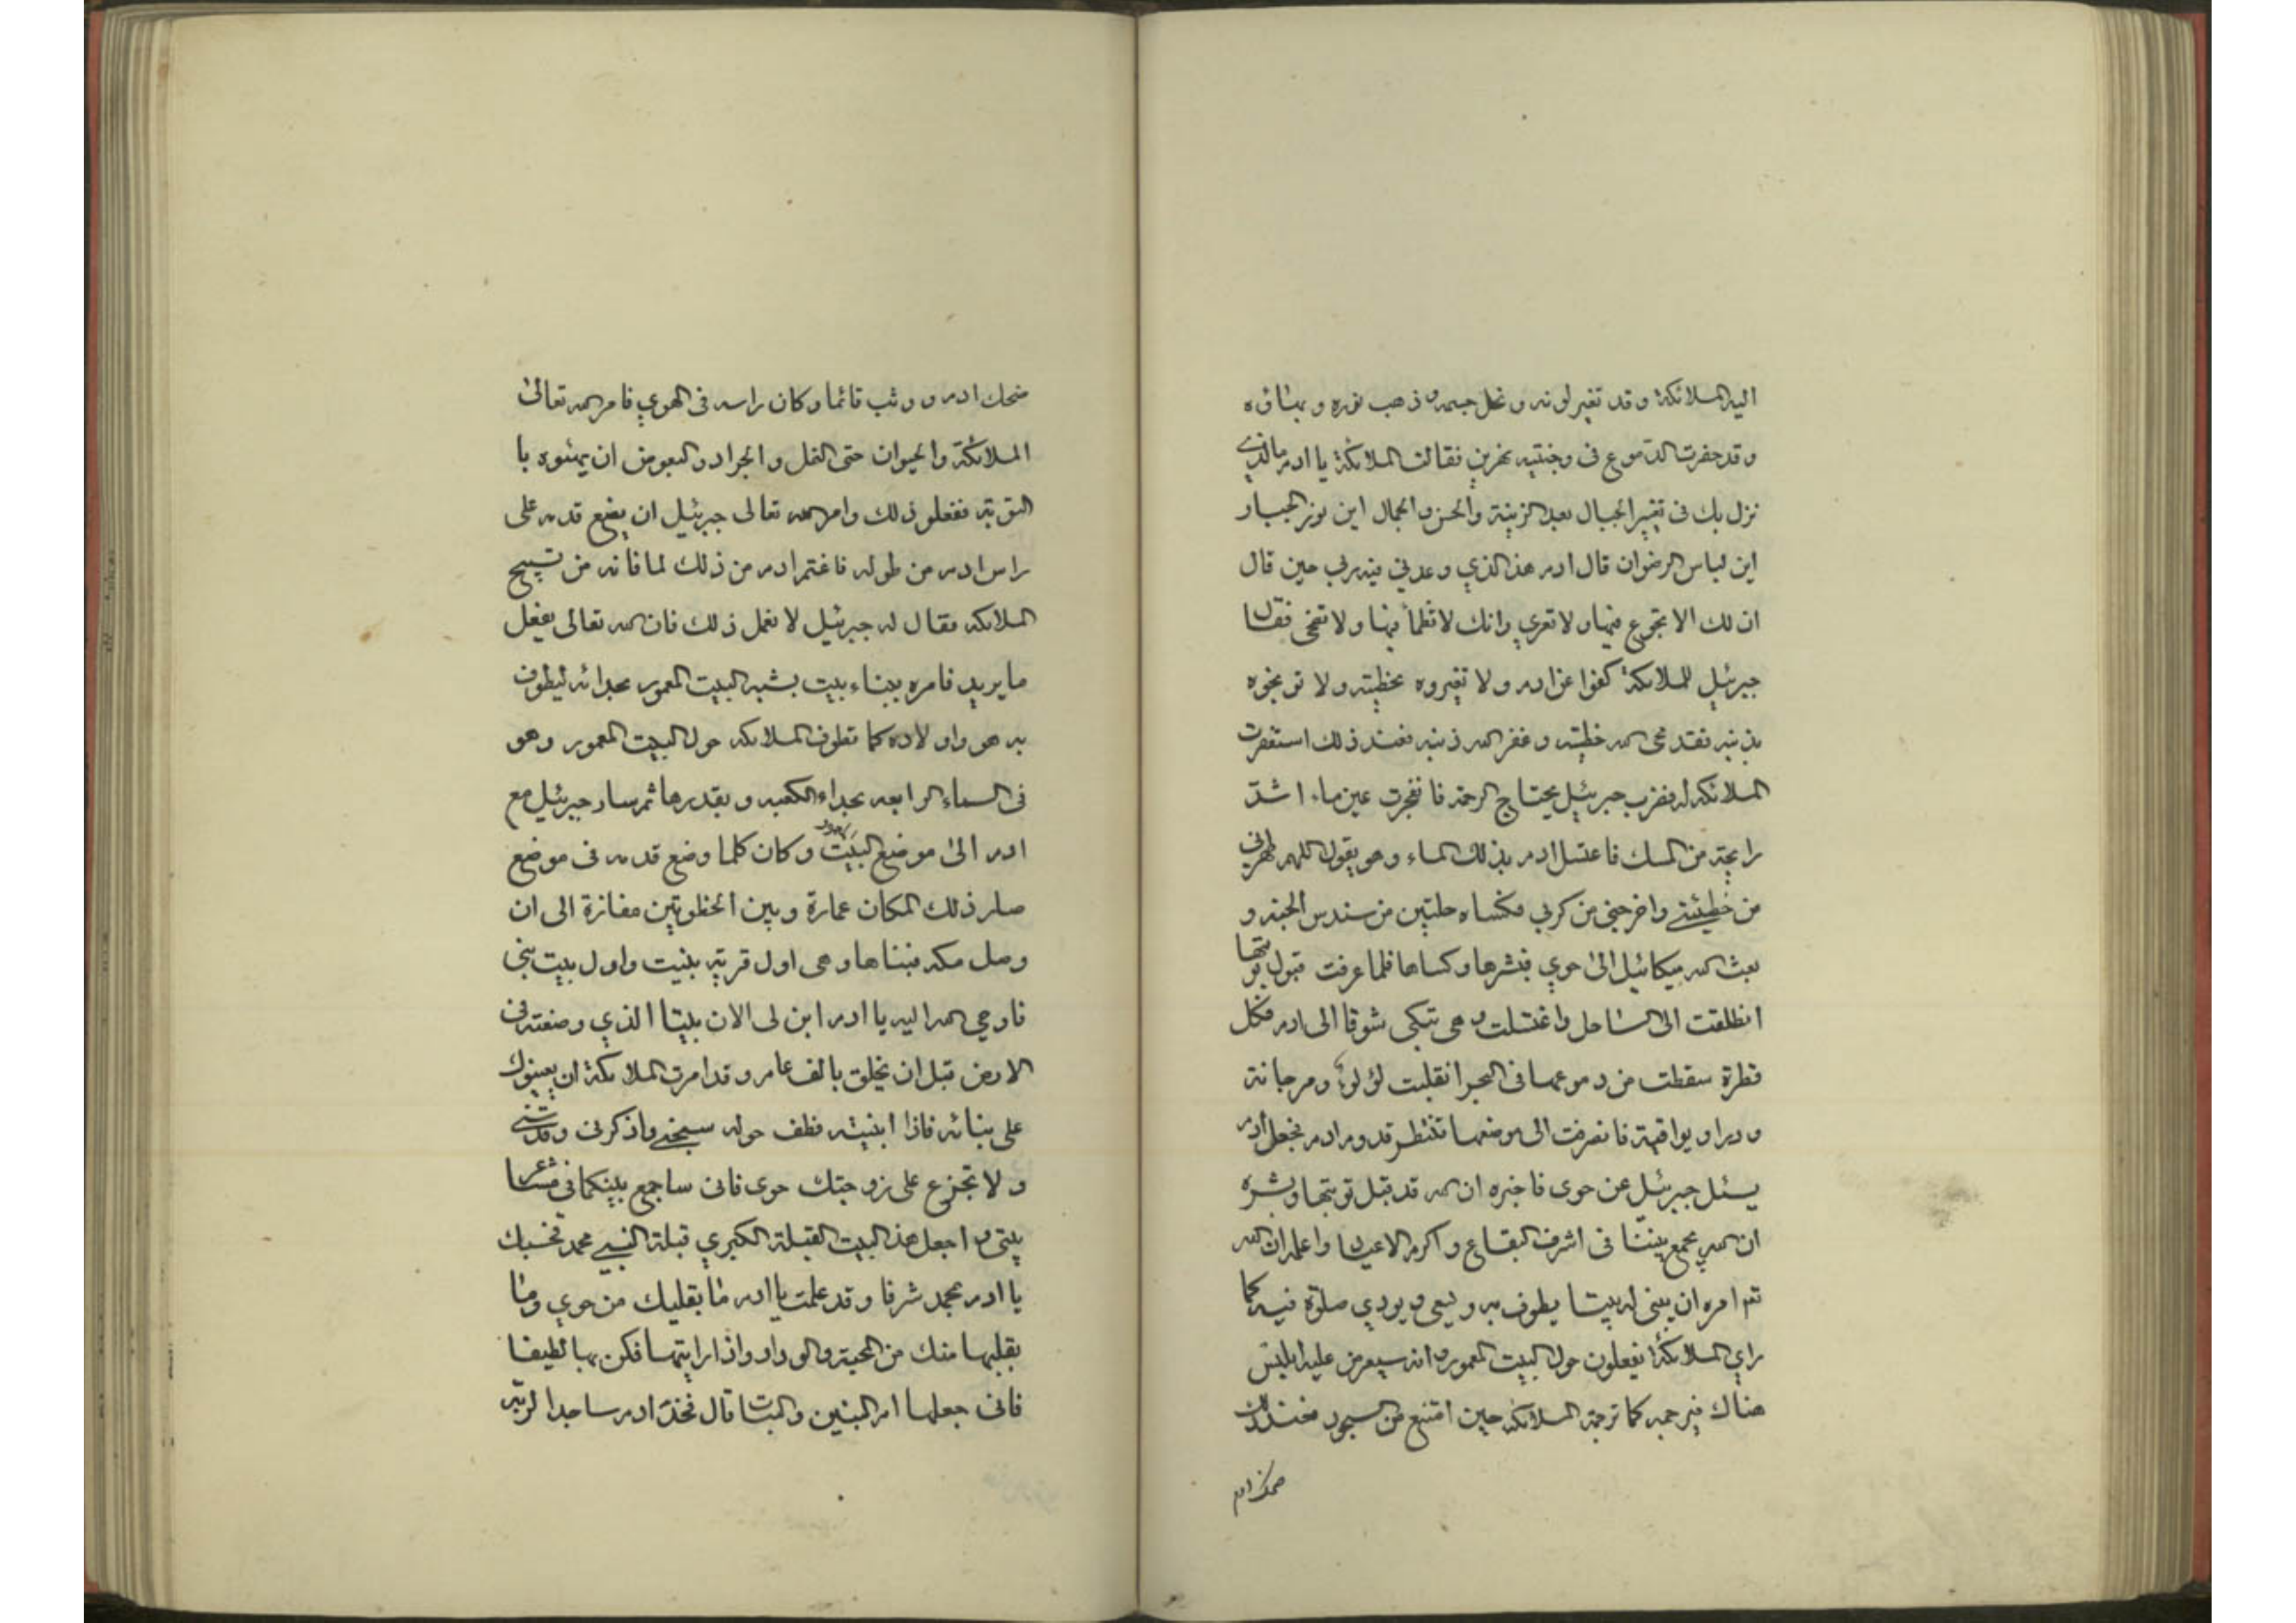 اليه الملائكة وقد تغير لونه ونحل جسمه وذهب نوره وبهاؤه
وقد حفرت الدموع فى وجنتيه نهرين فقالت الملائكة يا ادم ما الذي
نزل بك فى تغيير الجبال بعد الزينة والحسن والجمال اين نور الجبار
اين لباس الرضوان قال ادم هذا الذي وعدني فيه ربي حين قال
ان لك الا تجوع فيها ولا تعري وانك لا تظمأ فيها ولا تضحى فقال
جبرئيل للملائكة كفوا عن ادم ولا تغيروه بخطيته ولا توبخوه
بذنبه فقد محى الله خطيته وغفر الله ذنبه فعند ذلك استغفرت
الملائكه له فضرب جبرئيل بجناح الرحمة فانفجرت عين ماء اشدّ
رايحة من المسك فاغتسل ادم بذلك الماء وهو يقول اللهم طهرني
من خطيئتي واخرجني من كربي فكساه حلتين من سندس الجنه و
بعث الله ميكائيل الى حوي فبشرها وكساها فلما عرفت قبول توبتها
انطلقت الى الساحل واغتسلت وهى تبكى شوقا الى ادم فكل
قطرة سقطت من دموعها فى البحر انقلبت لؤلوء ومرجانة
ودرا ويواقيتة فانصرفت الى موضعها تنتظر قدوم ادم فجعل ادم
يسئل جبرئيل عن حوى فاخبره ان الله قد قبل توبتها وبشره
ان الله يجمع بيننا فى اشرف البقاع واكرم الاعياد واعلم ان الله
تع امره ان يبنى له بيتا يطوف به ويسعى ويودي صلوة فيه كما
راي الملائكة يفعلون حول البيت المعمور وانه سيعرض عليه ابليس
هناك فيرجمه كما ترجمه الملائكه حين امتنع من السجود فعند ذلك
ضحك ادم
ضحك ادم ووثب قائما وكان راسه فى الهوي فامر الله تعالىٰ
الملائكة والحيوان حتى النمل والجراد والبعوض ان يهنئوه با
لتوبة ففعلو ذلك وامر الله تعالى جبرئيل ان يضع قدمه على
راس ادم من طوله فاغتم ادم من ذلك لما فاته من تسبيح
الملائكه فقال له جبرئيل لا تعمل ذلك فان الله تعالى يفعل
ما يريد فامره ببناء بيت بشبه البيت المعمور بحذائه ليطوف
به هو واولاده كما تطوف الملائكه حول البيت المعمور وهو
فى السماء الرابعه بحذاء الكعبه وبقدرها ثم سار جبرئيل مع
ادم الىٰ موضع البيت وكان كلما وضع قدمه فى موضع
صار ذلك المكان عمارة وبين الخطوتين مفازة الى ان
وصل مكه فبناها وهى اول قرية بنيت واول بيت بنى
فاوحي الله اليه يا ادم ابن لى الان بيتا الذي وضعته فى
الارض قبل ان تخلق بالف عام وقد امرت الملائكة ان يعينوك
على بنائه فاذا ابنيته فطف حوله سبحنى واذكرنى وقدسني
ولا تجزع على زوجتك حوى فانى ساجمع بينكما فى مشعر
بيتى واجعل هذ البيت القبلة الكبري قبلة النبي محمد فحسبك
يا ادم بمحمد شرفا وقد علمت يا ادم ما بقلبك من حوي وما
بقلبها منك من المحبة والوداد واذا رايتها فكن بها لطيفا
فانى جعلها ام البنين والبنات قال فخذ ادم ساجدا لربّه